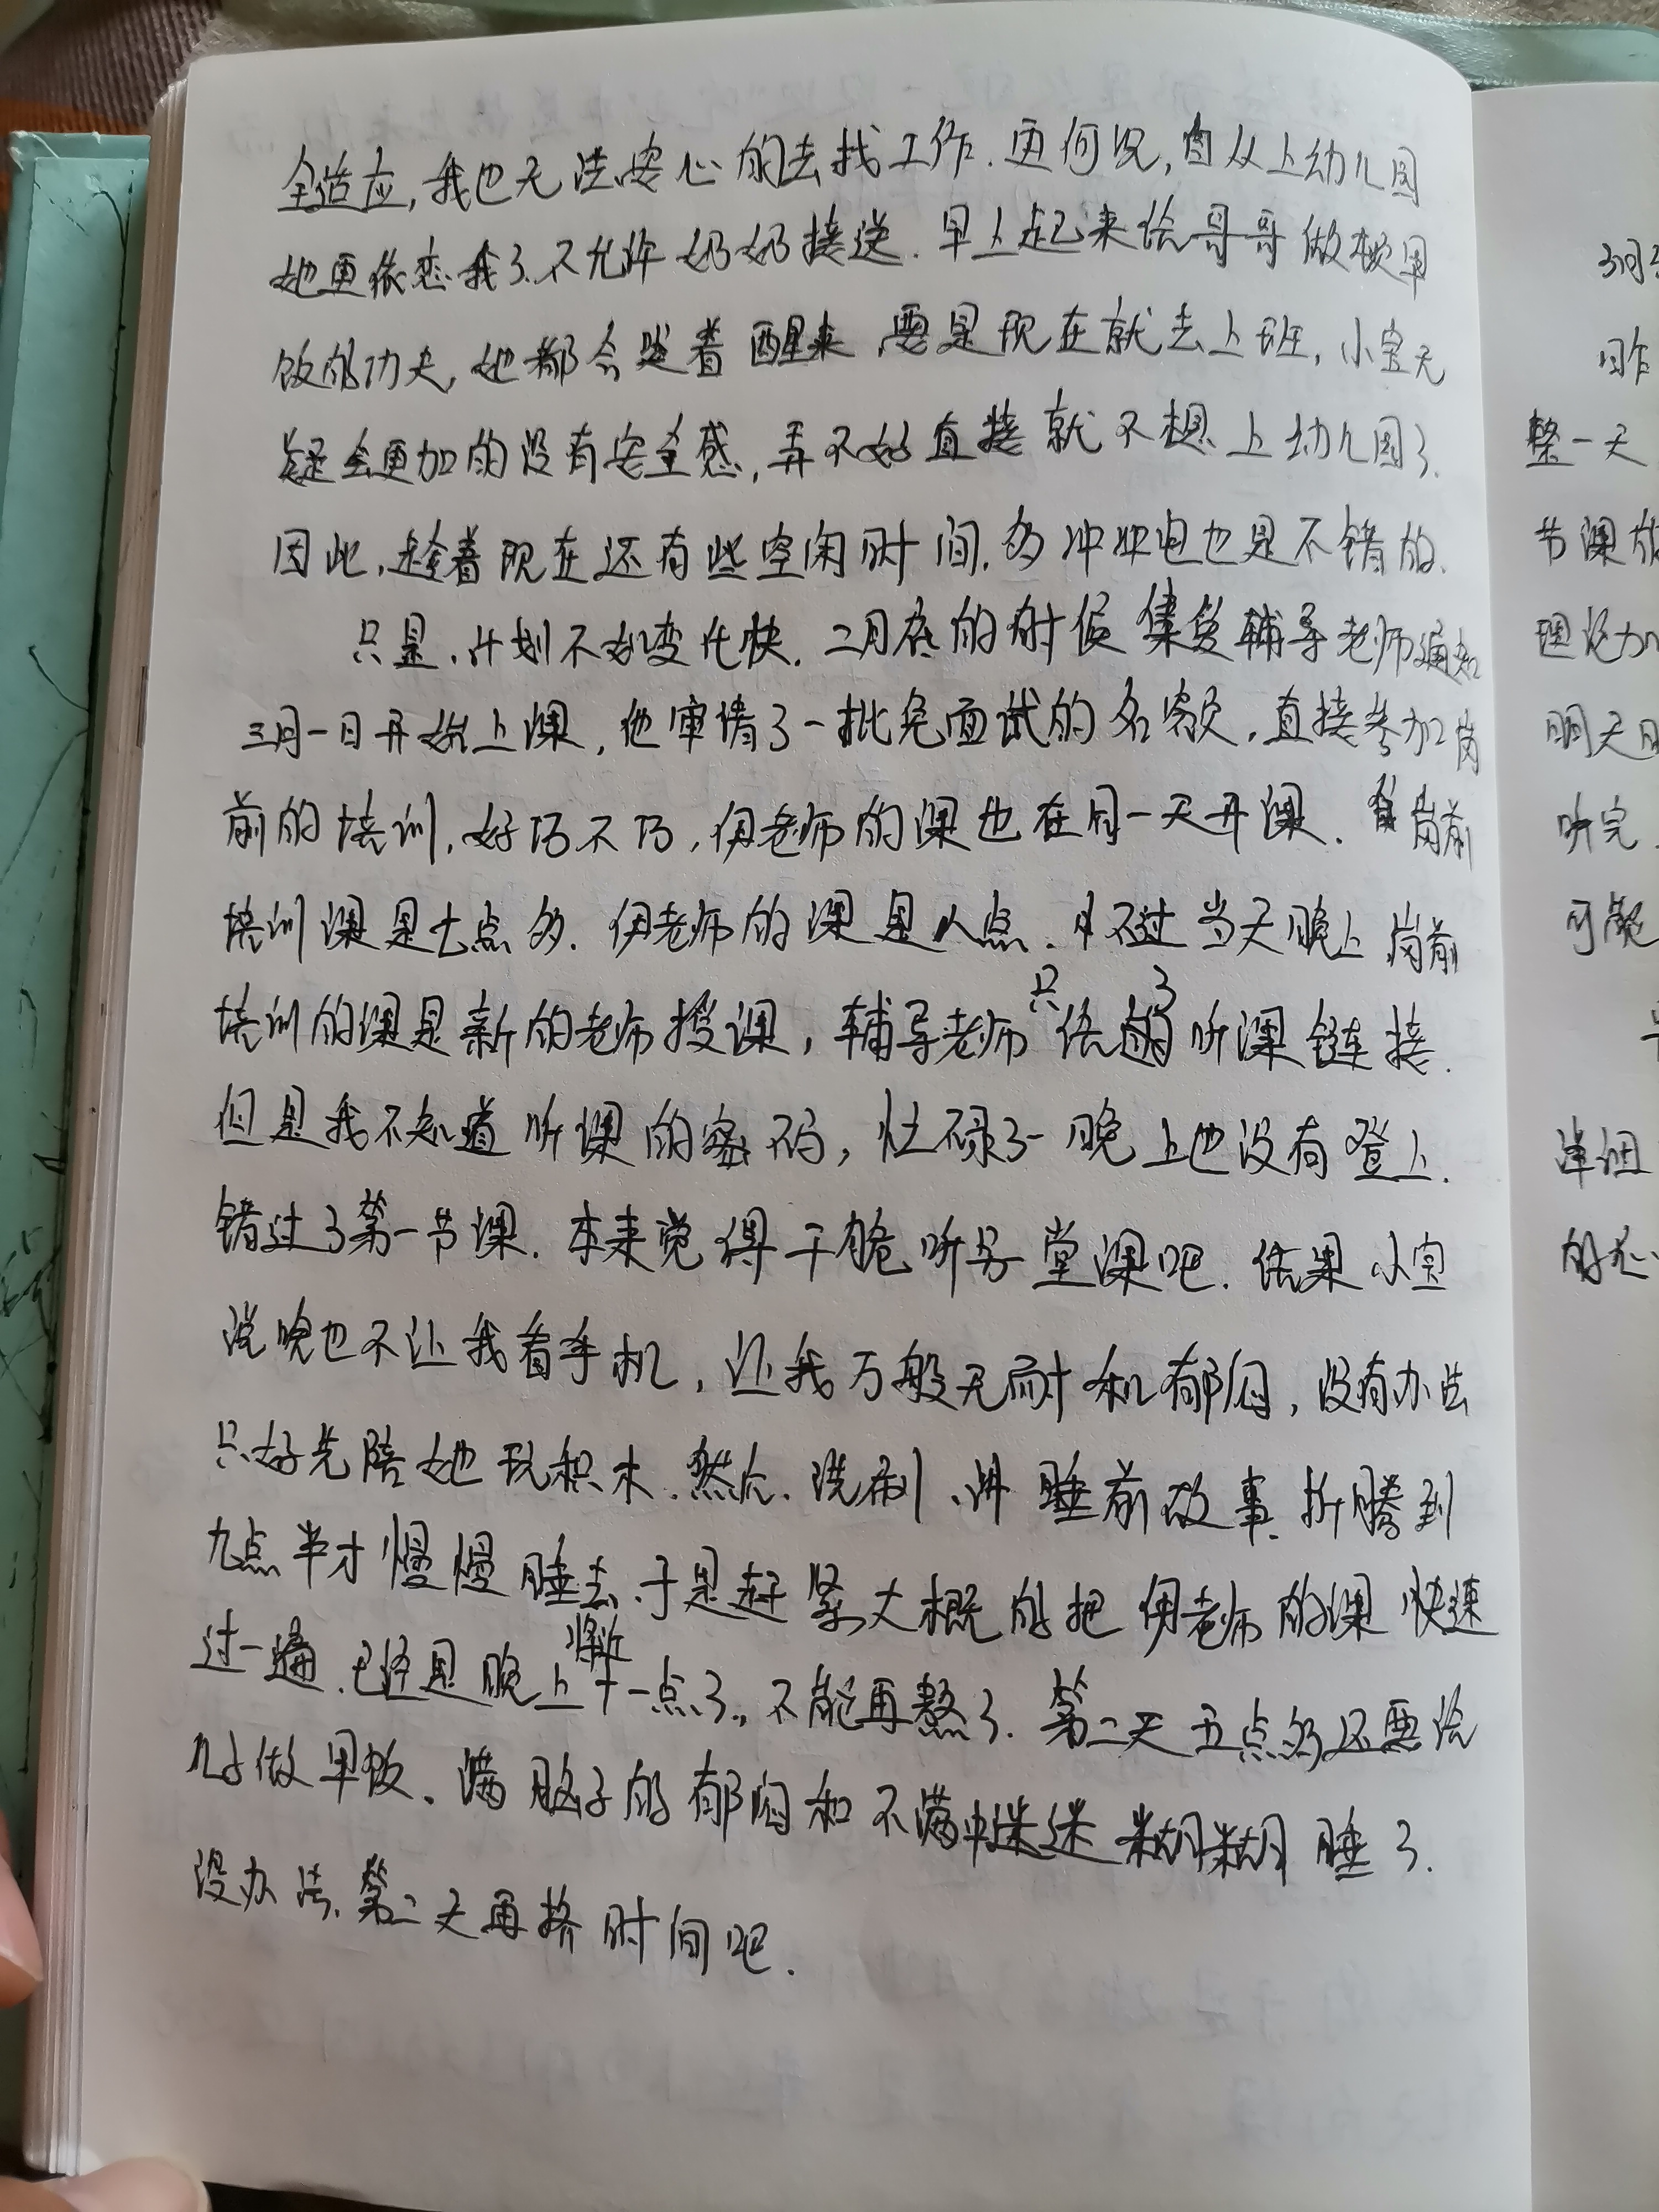 全适应,我也无法安心的去找工作.更何况,自从上幼儿园
她更依恋我了.不允许奶奶接送.早上起来给哥哥做顿早
饭的功夫,她都会跟着醒来.要是现在就去上班,小宝无
疑会更加的没有安全感,弄不好直接就不想上幼儿园了.
因此,趁着现在还有些空闲时间,多冲冲电也是不错的.
只是,计划不如变化快.二月底的时候集贤辅导老师通知
三月一日开始上课,他审请了一批免面试的名额,直接参加岗
前的培训,好巧不巧,伊老师的课也在同一天开课.岗前
培训课是七点多.伊老师的课是八点.不过当天晚上岗前
培训的课是新的老师授课,辅导老师只给了听课链接.
但是我不知道听课的密码,忙碌了一晚上也没有登上.
错过了第一节课.本来觉得干脆听另堂课吧.结果小宝
说啥也不让我看手机,让我万般无耐和郁闷,没有办法
只好先陪她玩积木.然后.洗刷、讲睡前故事.折腾到
九点半才慢慢睡去.于是赶紧大概的把伊老师的课快速
过一遍.已经是晚上将近十一点了,不能再熬了.第二天五点多还要给
儿子做早饭.满脑子的郁闷和不满中迷迷糊糊睡了.
没办法.第二天再挤时间吧.
3月
昨
整一天
节课
理论
明天
听完.
可能
详细
的